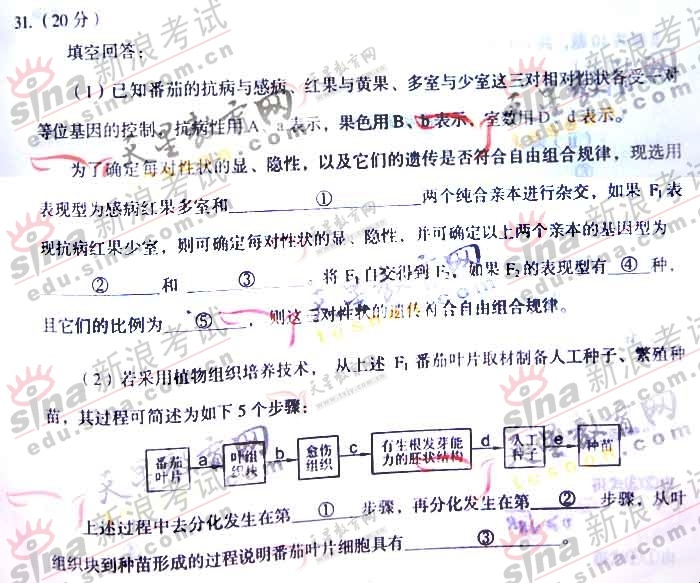 31.（20分）
填空回答：
（1）已知番茄的抗病与感病、红果与黄果、多室与少室这三对相对性状各受一对
等位基因的控制，抗病性用A、a表示，果色用B、b表示、室数用D、d表示。
为了确定每对性状的显、隐性，以及它们的遗传是否符合自由组合规律，现选用
表现型为感病红果多室和 ① 两个纯合亲本进行杂交，如果F₁表
现抗病红果少室，则可确定每对性状的显、隐性，并可确定以上两个亲本的基因型为
② 和 ③ 。将F₁自交得到F₂，如果F₂的表现型有 ④ 种，
且它们的比例为 ⑤ ，则这三对性状的遗传符合自由组合规律。
（2）若采用植物组织培养技术，从上述F₁番茄叶片取材制备人工种子、繁殖种
苗，其过程可简述为如下5个步骤：
番茄叶片 a 叶组织块 b 愈伤组织 c 有生根发芽能力的胚状结构 d 人工种子 e 种苗
上述过程中去分化发生在第 ① 步骤，再分化发生在第 ② 步骤，从叶
组织块到种苗形成的过程说明番茄叶片细胞具有 ③ 。
sina 新浪考试
edu.sina.com.cn
天星教育网
tesoon.com